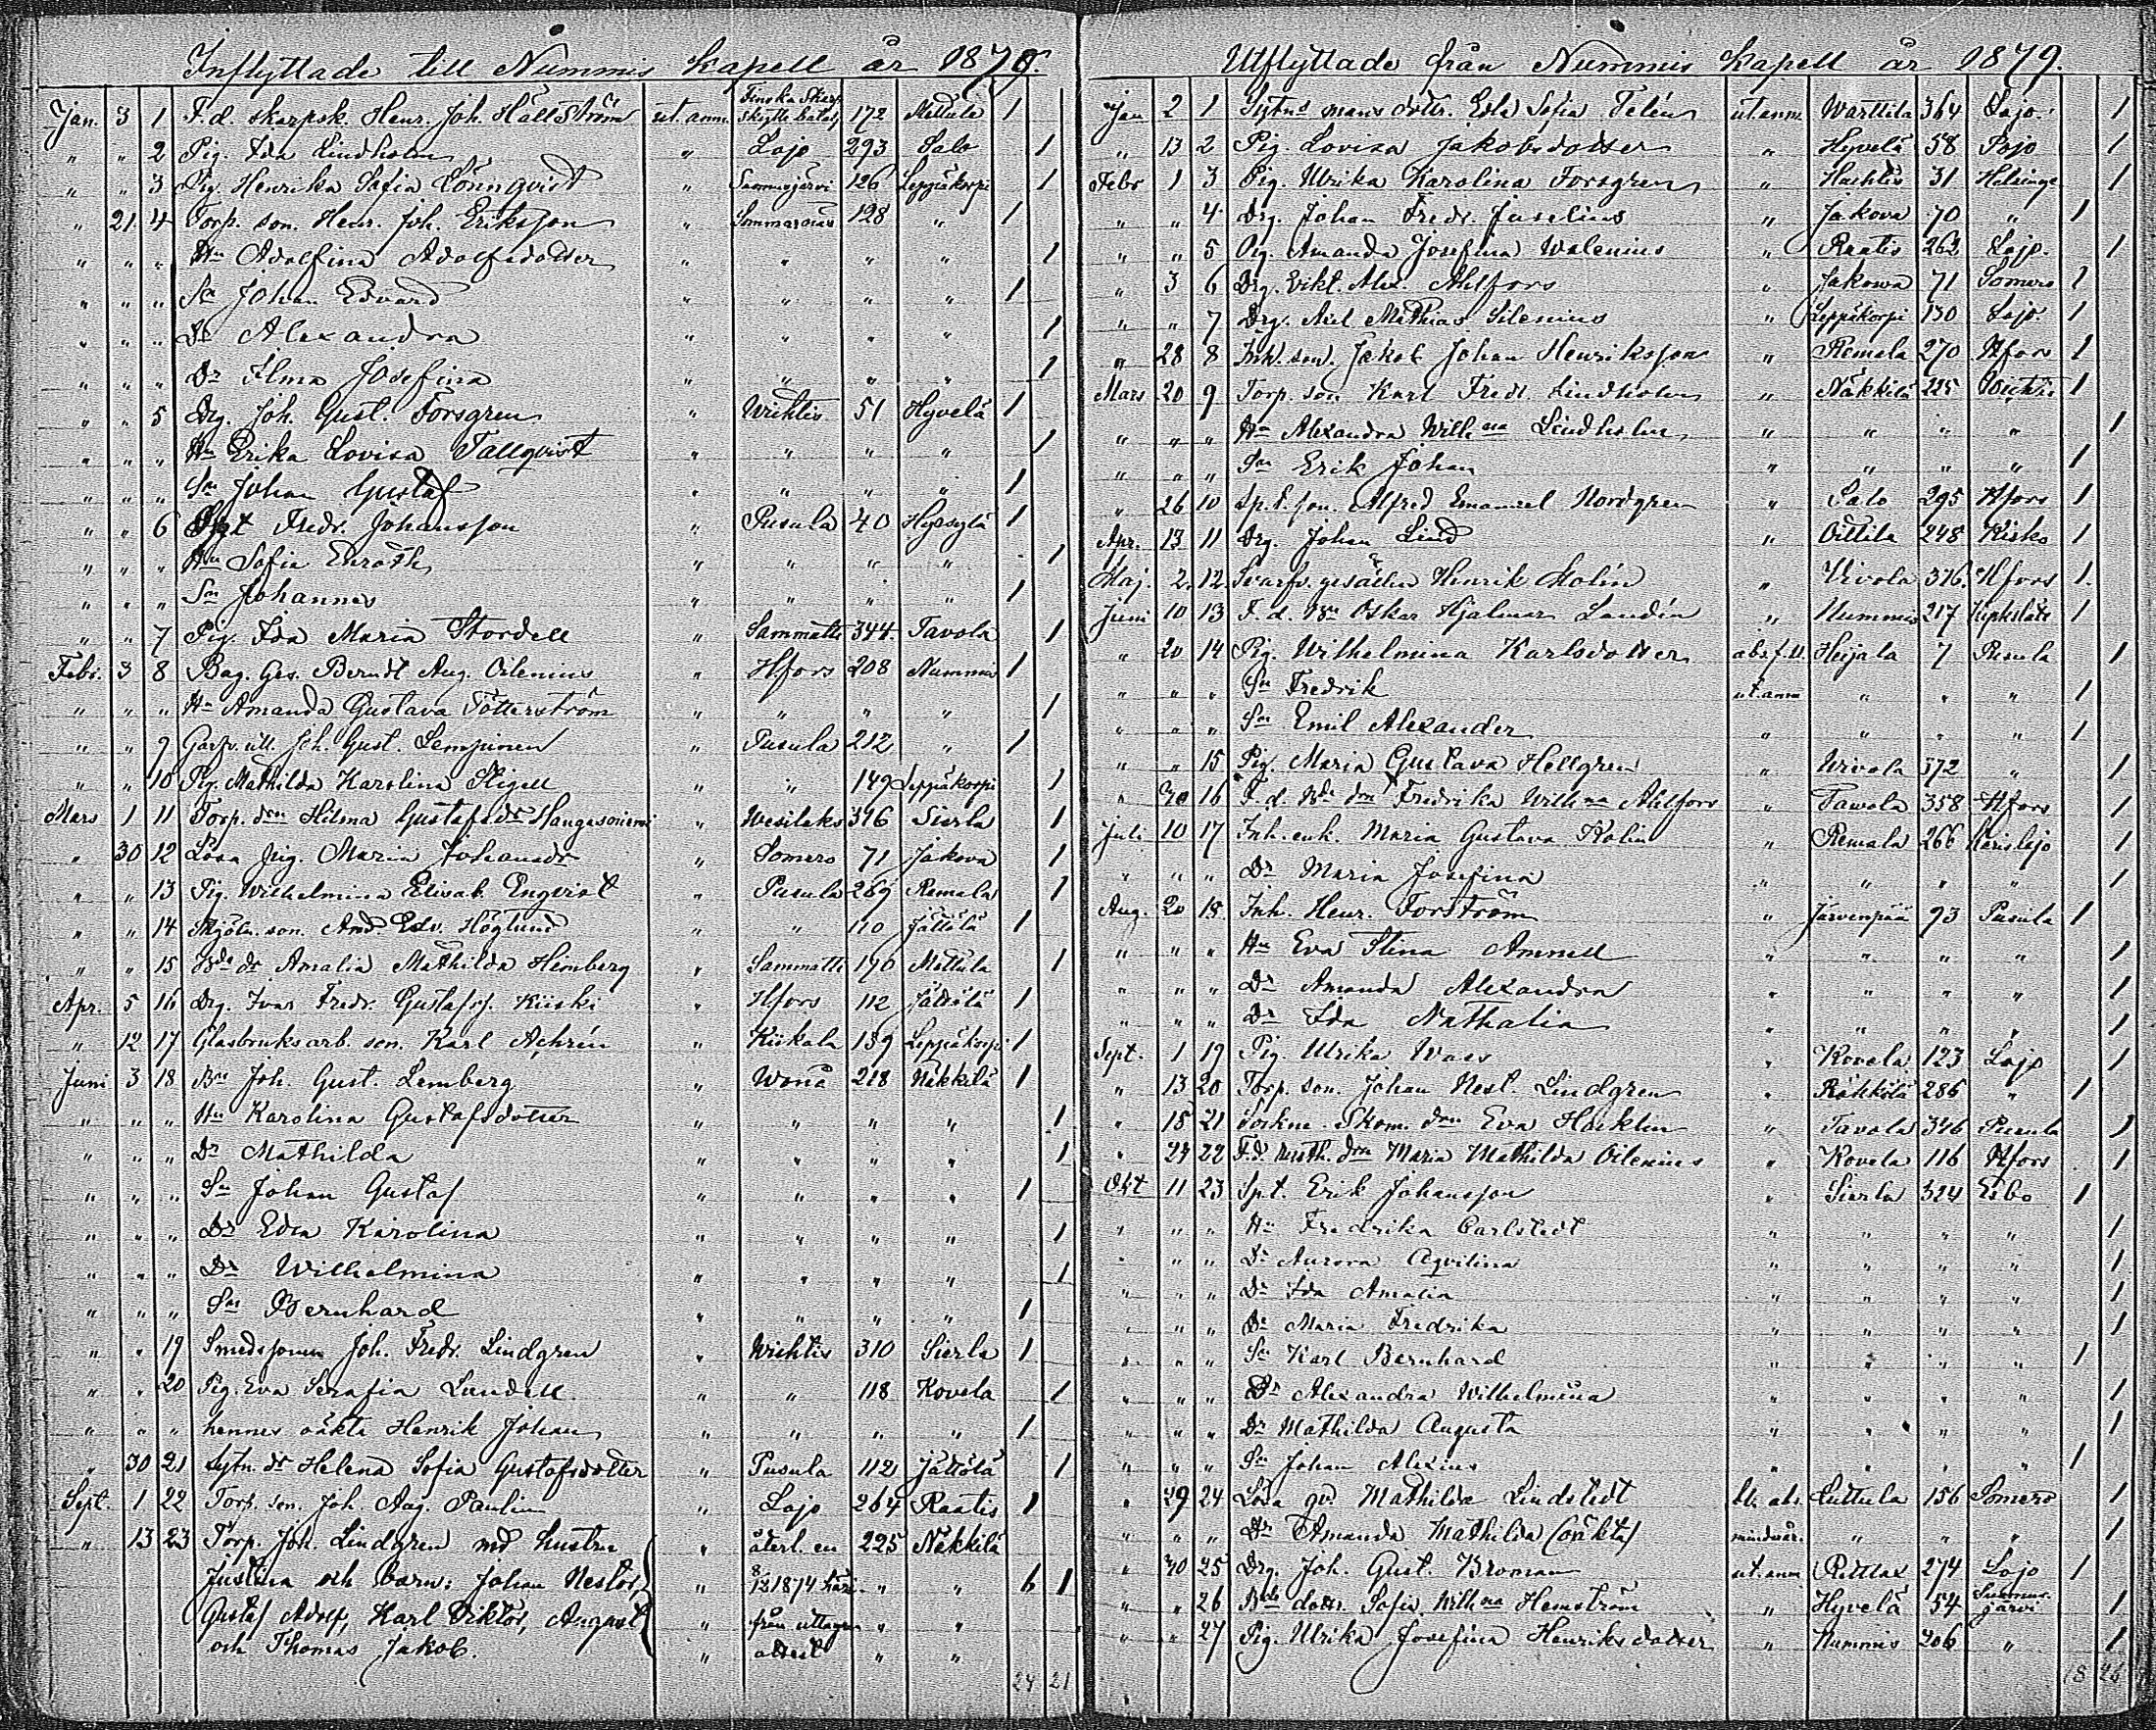 Inflyttade till Nummis kapell år 1879.
Jan. 3 1 F. d. skarpsk. Henr. Joh. Hällström ut. anm. Finska Skarpskytte batalj 172 Mettula 1
" " 2 Pig. Ida Lindholm " Lojo 293 Salo 1
" " 3 Pig. Henrika Sofia Lönnqvist " Sammasjärvi 126 Leppäkorpi 1
" 21 4 Torp. son. Henr. Joh. Eriksson " Sommarnäs 128 " 1
" " " Hu Adolfina Adolfsdotter " " " " 1
" " " Sn Johan Edvard " " " " 1
" " " Dr Alexandra " " " " 1
" " " Dr Ilma Josefina " " " " 1
" " 5 Drg. Joh. Gust. Forsgren " Wichtis 51 Hyvelä 1
" " " Hu Erika Lovisa Tallqvist " " " " 1
" " " Sn Johan Gustaf " " " " 1
" " 6 Spt Fredr. Johansson " Pusula 40 Hyrsylä 1
" " " Hu Sofia Enroth " " " " 1
" " " Sn Johannes " " " " 1
" " 7 Pig. Ida Maria Stordell " Sammatti 344 Tavola 1
Febr. 3 8 Bag. Ges. Berndt Aug. Oilenius " Hfors 208 Nummis 1
" " " Hu Amanda Gustava Tötterström " " " " 1
" " 9 Garfv. ull. Joh. Gust. Lempinen " Pusula 212 " 1
" " 10 Pig. Mathilda Karolina Stigell " " 149 Leppäkorpi 1
Mars 1 11 Torp. drn Hilma Gustafsdr Hangasniemi " Wesilaks 316 Sierla 1
" 30 12 Lösa pig. Maria Johansdr " Somero 71 Jakova 1
" " 13 Pig. Wilhelmina Elisab. Engvist " Pusula 269 Remala 1
" " 14 Mjöln. son. And. Edv. Höglund " " 110 Jättölä 1
" " 15 Bde dr Amalia Mathilda Himberg " Sammatti 190 Mettula 1
Apr. 5 16 Drg. Ivar Fredr. Gustafss. Kiiski " Hfors 112 Jättölä 1
" 12 17 Glasbruksarb. son. Karl Achrén " Kiikala 139 Leppäkorpi 1
Juni 3 18 Bn Joh. Gust. Lemberg " Wonå 218 Näkkilä 1
" " " Hu Karolina Gustafsdotter " " " " 1
" " " Dr Mathilda " " " " 1
" " " Sn Johan Gustaf " " " " 1
" " " Dr Edla Karolina " " " " 1
" " " Dr Wilhelmina " " " " 1
" " " Sn Bernhard " " " " 1
" " 19 Smedsonen Joh. Fredr. Lindgren " Wichtis 310 Sierla 1
" " 20 Pig. Eva Serafia Lundell " " 118 Kovela 1
" " " hennes oäkta Henrik Johan " " " " 1
" 30 21 Sytn. dr Helena Sofia Gustafsdotter " Pusula 112 Jättölä 1
Sept. 1 22 Torp. son. Joh. Aug. Paulin " Lojo 264 Raatis 1
" 13 23 Torp. Joh. Lindgren med hustru " återl. en 225 Näkkilä
Justina och barn: Johan Nestor, " 1874 " " 6 1
Gustaf Adolf, Karl Viktor, August " från uttagen " "
och Thomas Jakob. " attest " "
24 21
Utflyttade från Nummis kapell år 1879.
Jan 2 1 Sytns mans dottr. Edla Sofia Telén ut. anm. Warttila 364 Lojo. 1
" 13 2 Pig. Lovisa Jakobsdotter " Hyvelä 58 Pojo 1
Febr 1 3 Pig. Ulrika Karolina Forsgren " Huhtis 31 Helsinge 1
" " 4 Drg. Johan Fredr. Juselius " Jakova 70 " 1
" " 5 Pig. Amanda Josefina Walenius " Raatis 262 Lojo. 1
" 3 6 Drg. Vikt. Alex. Ahlfors " Jakowa 71 Somero 1
" " 7 Drg. Axel Mathias Silenius " Leppäkorpi 130 Lojo. 1
" 28 8 Inh. son. Jakob Johan Henriksson " Remala 270 Hfors 1
Mars 20 9 Torp. son Karl Fredr. Lindholm " Näkkilä 225 Wichtis 1
" " " Hu Alexandra Wilhna Lindholm " " " " 1
" " " Sn Erik Johan " " " " 1
" 26 10 Sp. l. son. Alfred Emanuel Nordgren " Salo 295 Hfors 1
Apr. 13 11 Drg. Johan Lind " Oittila 248 Kisko 1
Maj. 2. 12. Svarfv. gesällen Henrik Molin " Vivola 376. Hfors 1.
Juni 10 13 F. d. Bn Oskar Hjalmar Landén " Nummis 217 Kyrkslätt 1
" 20 14 Pig. Wilhelmina Karlsdotter abs. f. ll. Heijala 7 Pusula 1
" " " Sn Fredrik ut. anm " " " 1
" " " Sn Emil Alexander " " " " 1
" " 15 Pig. Maria Gustava Hellgren " Wivola 372 " 1
" 30 16 F. d. Bde drn Fredrika Wilhna Ahlfors " Tawola 358 Hfors 1
Juli 10 17 Inh. enk. Maria Gustava Kolin " Remala 266 Karislojo 1
" " " Dr Maria Josefina " " " " 1
Aug. 20 18 Inh. Henr. Forström " Järvenpää 93 Pusula 1
" " " Hu Eva Stina Ammell " " " " 1
" " " Dr Amanda Alexandra " " " " 1
" " " Dr Ida Nathalia " " " " 1
Sept. 1 19 Pig. Ulrika Waes " Kovela 123 Lojo 1
" 13 20 Torp. son. Johan Nest. Lindgren " Räkkölä 286 " 1
" 18 21 Sockne Skom. drn Eva Häcklin " Tavola 346 Pusula 1
" 24 22 F. d. drn Maria Mathilda Oilenius " Kovela 116 Hfors 1
Okt 11 23 Spt. Erik Johansson " Sierla 324 Esbo 1
" " " Hu Fredrika Carlstedt " " " " 1
" " " Dr Aurora Aqvilina " " " " 1
" " " Dr Ida Amalia " " " " 1
" " " Dr Maria Fredrika " " " " 1
" " " Sn Karl Bernhard " " " " 1
" " " Dr Alexandra Wilhelmina " " " " 1
" " " Dr Mathilda Augusta " " " " 1
" " " Sn Johan Alexius " " " " 1
" 29 24 Lösa qv. Mathilda Lindstedt Luttula 156 Somero 1
" " " Dr Amanda Mathilda (oäkta) mindeår. " " " 1
" 30 25 Drg. Joh. Gust. Broman ut. anm Pitkas 274 Lojo 1
" " 26 Bde dottr. Sofia Wilhna Hemström " Hyvelä 54 Summasjärvi 1
" " 27 Pig. Ulrika Josefina Henriksdotter " Nummis 206 " 1
18 26